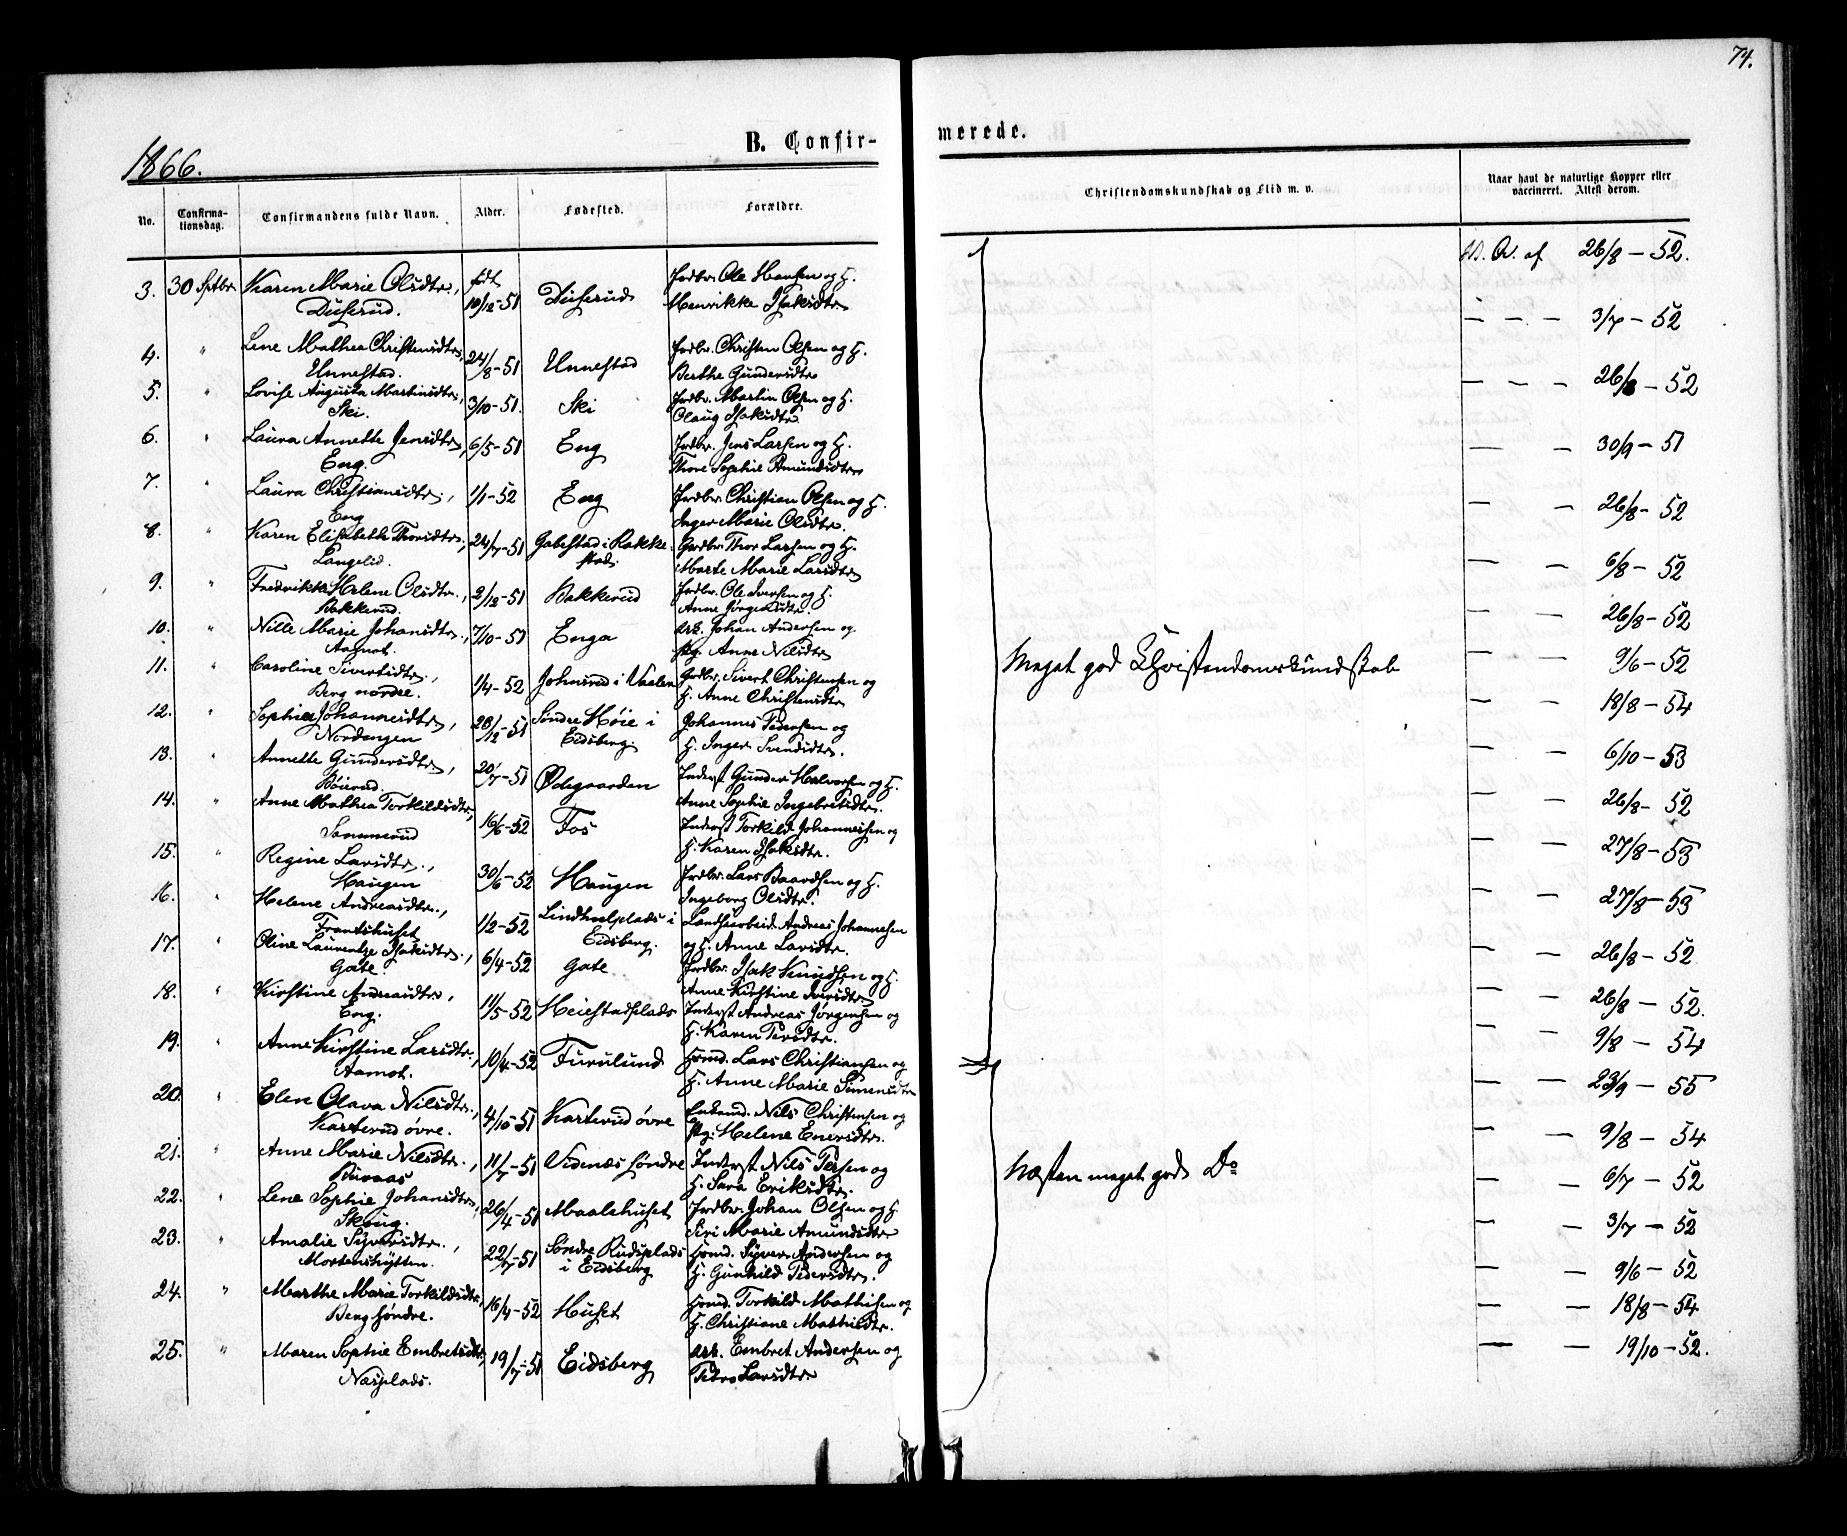 74.
1866.
B. Confir-
merede.
No.
Confirma-
tionsdag.
Confirmandens fulde Navn.
Alder.
Fødested.
Forældre.
Christendomskundskab og Flid m. v.
Naar havt de naturlige Kopper eller
vaccineret. Attest derom.
3. 30 Sptbr Karen Marie Olsdtr, født Jrdbr. Ole Hansen og H.
Duserud. 10/12-51 Duserud Henrikke Isaksdtr
4. " Lene Mathea Christensdtr, 24/8-51 Unnestad Jrdbr. Christen Olsen og H.
Unnestad. Berthe Gundersdtr
5. " Lovise Augusta Martinsdtr, 3/10-51. Ski Jrdbr. Martin Olsen og H.
Ski. Olaug Isaksdtr
6. " Laura Annette Jensdtr, 6/5-51 Eng Jrdbr. Jens Larsen og H.
Eng. Thore Sophie Amundsdtr
7. " Laura Christiansdtr, 1/1-52 Eng Jrdbr. Christian Olsen og H.
Eng Inger Marie Olsdtr.
8. " Karen Elisabeth Thorsdtr, 24/7-51 Gabestad i Rakke- Grdbr. Thor Larsen og H.
Langelid. stad. Marte Marie Larsdtr
9. " Fredrikke Helene Olsdtr., 2/12-51 Bakkerud Jrdbr. Ole Iversen og H.
Bakkerud. Anne Jørgensdtr.
10. " Nille Marie Johansdtr., 7/10-51 Enga Arb. Johan Andersen og
Aamot. Anne Nilsdtr
11. " Caroline Sivertsdtr., 1/4-52 Johnsrud i Vaaler Grdbr. Sivert Christensen og
Berg nordre. H. Anne Christensdtr
12. " Sophie Johannesdtr, 20/12-51 Søndre Høie i Johannes Pedersen og
Nordengen Eidsberg. H. Inger Svendsdtr.
13. " Annette Gundersdtr, 20/7-51 Ødegaarden Inderst Gunder Halvorsen og H.
Anne Sophie Ingebretsdtr.
14. " Anne Mathea Torkildsdtr, 16/6-52 Fos Inderst Torkild Johannessen og
H. Karen Isaksdtr.
15. " Regine Larsdtr., 30/6-52 Haugen Jrdbr. Lars Baardsen og H.
Haugen Ingeborg Olsdtr.
16. " Helene Andreasdtr., 1/2-52 Lindholplads i Andreas Johannesen
Frantshuset Eidsberg. og H. Anne Larsdtr.
17. " Oline Laurentze Isaksdtr., 6/4-52 Gate Jrdbr. Isak Knudsen og H.
Gate. Anne Kirstine Iversdtr
18. " Kirstine Andreasdtr, 11/5-52 Heiestadplads Inderst Andreas Jørgensen og
Eng. H. Karen Persdtr.
19. " Anne Kirstine Larsdtr., 10/4-52 Furulund Hsmd. Lars Christiansen og
Aamot. H. Anne Marie Simensdtr
20. " Elen Olava Nilsdtr., 4/10-51 Karterud øvre Nils Christensen og
Karterud øvre. Helene Enersdtr.
21. " Anne Marie Nilsdtr., 11/7-51 Videnæs søndre Inderst Nils Persen og
Buraas H. Sara Eriksdtr.
22. " Lene Sophie Johansdtr, 26/4-51 Maalehuset Jrdbr. Johan Olsen og H.
Skaug. Siri Marie Amundsdtr
23. " Amalie Syversdtr., 22/7-51 Søndre Rudsplads Hsmd. Syver Andersen og
Mortenshytten. i Eidsberg H. Gunhild Pedersdtr.
24. " Marthe Marie Torkildsdtr, 16/4-52 Huset Hsmd. Torkild Mathisen og
Berg søndre. H. Christiane Mathisdtr.
25. " Maren Sophie Embretsdtr, 19/7-51 Eidsberg Arb. Embret Andersen og
Næsplads. Larsdtr
Meget god Christendomskundskab
Næsten meget god Do
af 26/8 - 52.
— — — 3/7 - 52
— — — 26/8 - 52
— 30/9 - 51
— — 26/8 - 52
— — 6/8 - 52
— — 26/8 - 52
— — 9/6 - 52
— — 18/8 - 54
— — 6/10 - 53
— — 26/8 - 52
— — 27/8 - 53
— — 27/8 - 53
— — 26/8 - 52
— — 26/8 - 52.
— — 9/8 - 54
— — 23/9 - 55
— — 9/8 - 54
— — 6/7 - 52
— — 3/7 - 52
— — 9/6 - 52
— — 18/8 - 54
— — 19/10 - 52.